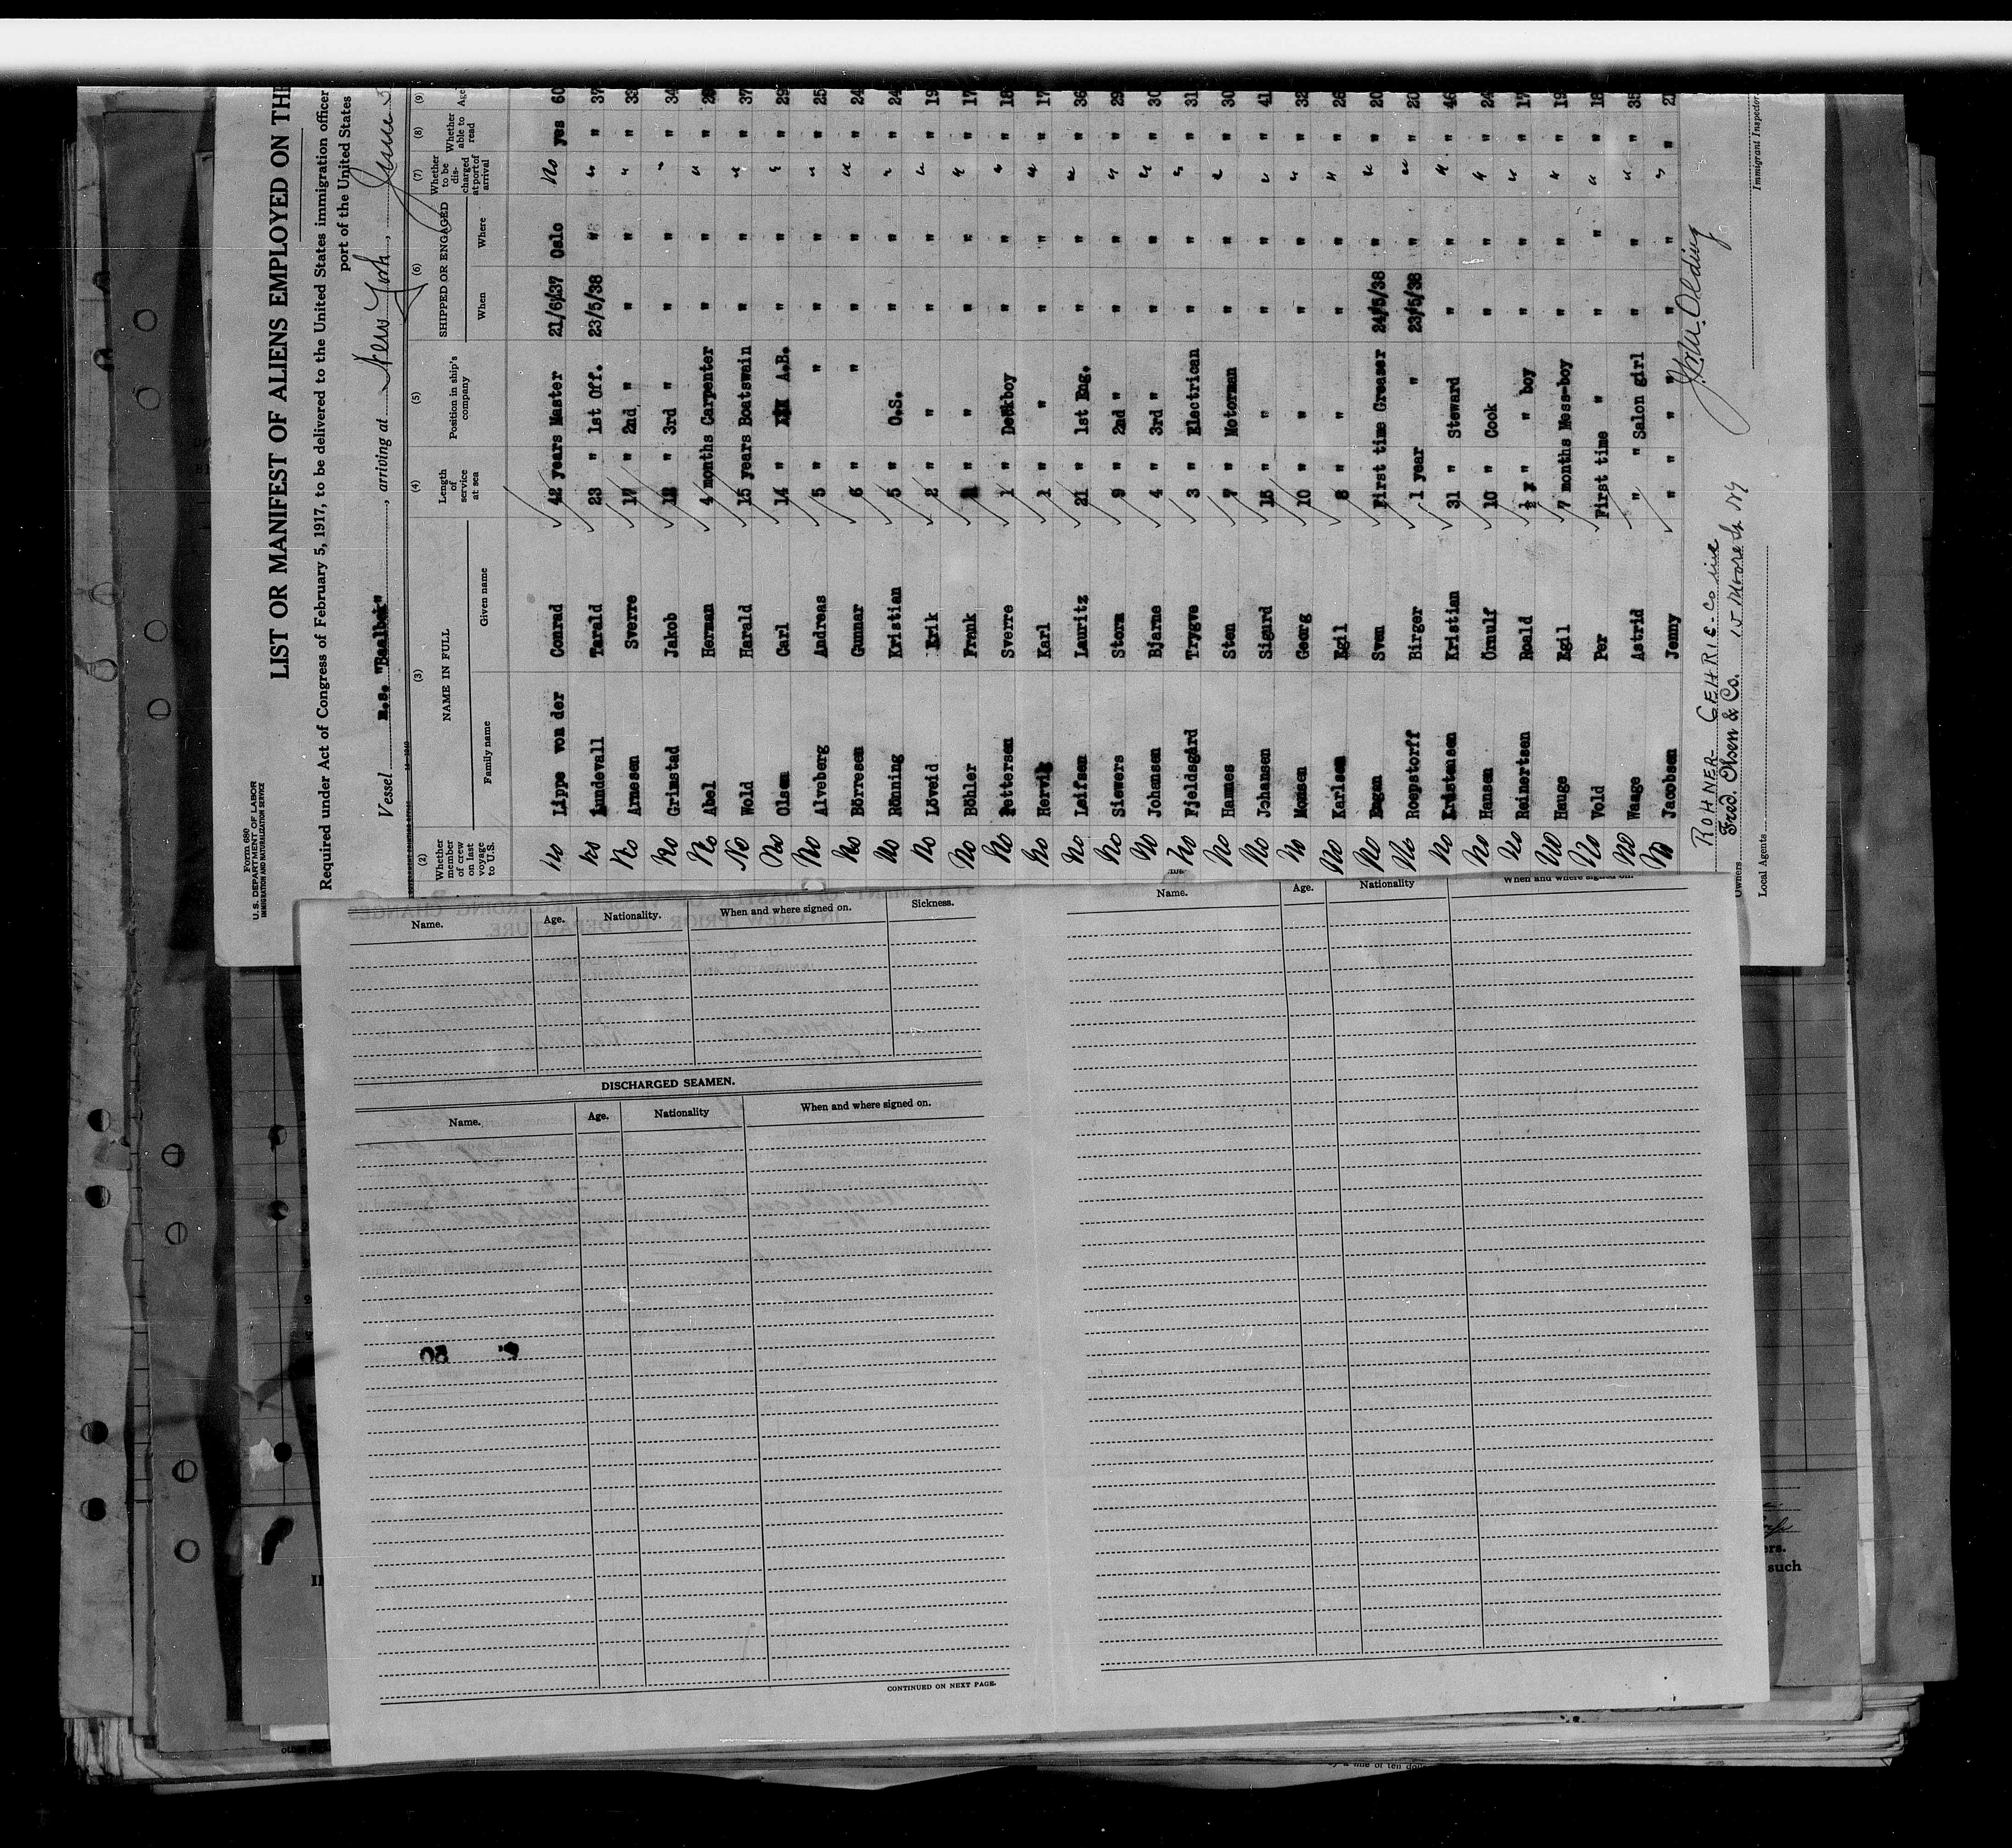 Form 680
U. S. DEPARTMENT OF LABOR
IMMIGRATION AND NATURALIZATION SERVICE
LIST OR MANIFEST OF ALIENS EMPLOYED ON THE
Required under Act of Congress of February 5, 1917, to be delivered to the United States immigration officer
port of the United States
Vessel M.s. "Baalbek", arriving at New York, June 3
(2) (3) (4) (5) (6) (7) (8) (9)
Whether member of crew on last voyage to U.S. NAME IN FULL Length of service at sea Position in ship's company SHIPPED OR ENGAGED Whether to be discharged at port of arrival Whether able to read Age
Family name Given name When Where
No Lippe von der Conrad 42 years Master 21/6/37 Oslo No yes 60
No Lundevall Tarald 23 " 1st Off. 23/5/38 " " " 37
No Arnesen Sverre 17 " 2nd " " " " " 33
No Grimstad Jakob 12 " 3rd " " " " " 34
No Abel Herman 4 months Carpenter " " " " 28
No Wold Harald 15 years Boatswain " " " " 37
No Olsen Carl 14 " A.B. " " " " 29
No Alveberg Andreas 5 " " " " " " 25
No Börresen Gunnar 6 " " " " " " 24
No Rönning Kristian 5 " O.S. " " " " 24
No Löveid Erik 2 " " " " " " 19
No Böhler Frank " " " " " " 17
No Pettersen Sverre 1 " Deckboy " " " " 18
No Hervik Karl 1 " " " " " " 17
No Leifsen Lauritz 21 " 1st Eng. " " " " 36
No Siewers Storm 9 " 2nd " " " " " 29
No Johansen Bjarne 4 " 3rd " " " " " 30
No Fjeldsgård Trygve 3 " Electrican " " " " 31
No Hannes Sten 7 " Motorman " " " " 30
No Johansen Sigurd 15 " " " " " " 41
No Monsen Georg 10 " " " " " " 32
No Karlsen Egil 8 " " " " " " 26
No Sven First time Greaser 24/5/38 " " " 20
No Roepstorff Birger 1 year " 23/5/38 " " " 20
No Kristensen Kristian 31 " Steward " " " " 46
No Hansen Örnulf 10 " Cook " " " " 24
No Reinertsen Roald ½ " " boy " " " " 17
No Hauge Egil 7 months Mess-boy " " " " 19
No Vold Per First time " " " " " 18
No Waage Astrid " " Salon girl " " " " 35
No Jacobsen Jenny " " " " " " " " 21
ROHNER GEHRIG-Co inc
Owners Fred. Olsen & Co. 15 Moore St NY
Local Agents
Immigrant Inspector.
Name. Age. Nationality. When and where signed on. Sickness.
DISCHARGED SEAMEN.
Name. Age. Nationality When and where signed on.
CONTINUED ON NEXT PAGE.
Name. Age. Nationality When and where signed on.
such